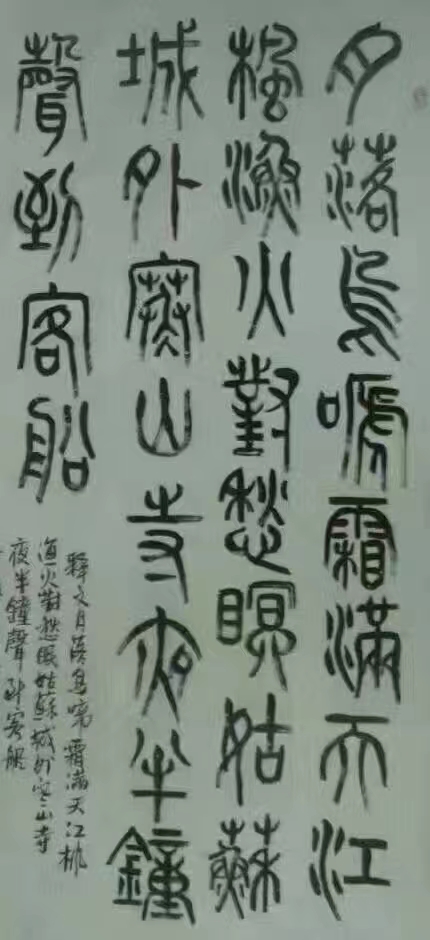 月落烏嗁霜滿天江
楓漁火對愁瞑姑蘇
城外寒山寺夜半鐘
聲到客船
釋文月落烏啼霜滿天江楓
渔火對愁眠姑蘇城外寒山寺
夜半鐘聲到客船